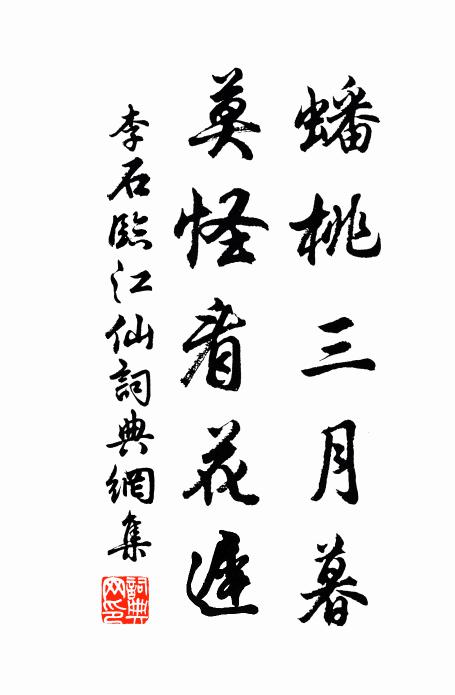 蟠桃三月暮
莫怪看花遲
李石臨江仙詞典網集